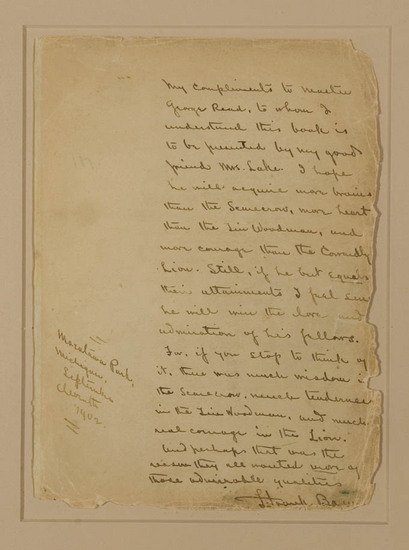 My compliments to Master
George Read, to whom I
understand this book is
to be presented by my good
friend Mrs. Lake. I hope
he will acquire more brains
than the Scarecrow, more heart
than the Tin Woodman, and
more courage than the Cowardly
Lion. Still, if he but equals
their attainments I feel sure
he will win the love and
admiration of his fellows.
For, if you stop to think of
it, there was much wisdom in
the Scarecrow, much tenderness
in the Tin Woodman, and much
real courage in the Lion.
And perhaps that was the
reason they all wanted more of
those admirable qualities
L. Frank Baum
Macatawa Park,
Michigan,
September
1902.